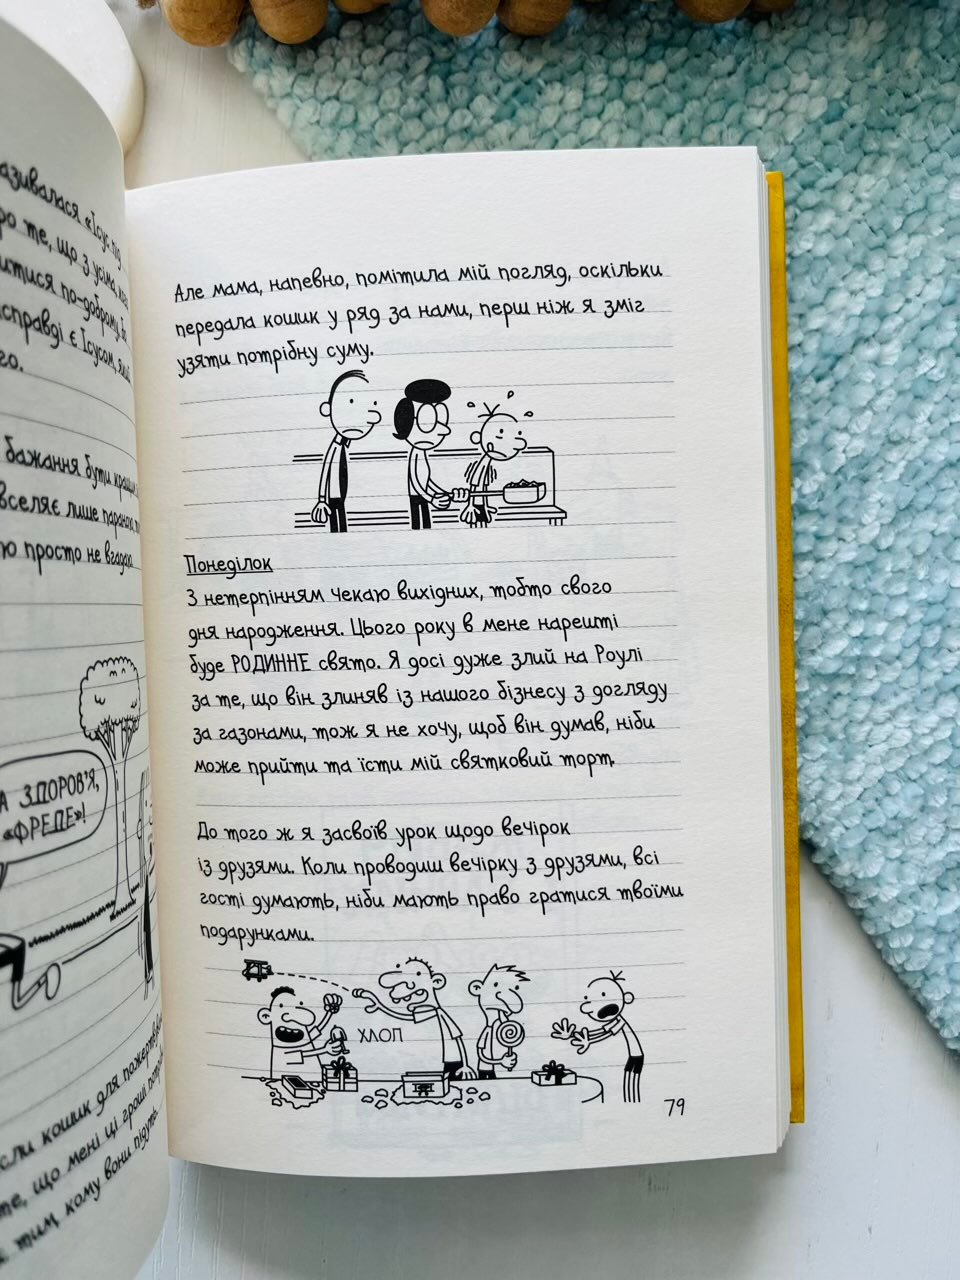 азивалася «Ісус під
ро те, що з усіма, кого
итися по-доброму, бо
справді є Ісусом, який
го.
бажання бути кращим
вселяє лише параною,
ю просто не вгадаю
А ЗДОРОВ'Я,
«ФРЕДЕ»!
сли кошик для пожертвувань
те, що мені ці гроші потрібні
тим, кому вони підуть
Але мама, напевно, помітила мій погляд, оскільки
передала кошик у ряд за нами, перш ніж я зміг
узяти потрібну суму.
Понеділок
З нетерпінням чекаю вихідних, тобто свого
дня народження. Цього року в мене нарешті
буде РОДИННЕ свято. Я досі дуже злий на Роулі
за те, що він злиняв із нашого бізнесу з догляду
за газонами, тож я не хочу, щоб він думав, ніби
може прийти та їсти мій святковий торт.
До того ж я засвоїв урок щодо вечірок
із друзями. Коли проводиш вечірку з друзями, всі
гості думають, ніби мають право гратися твоїми
подарунками.
ХЛОП
79